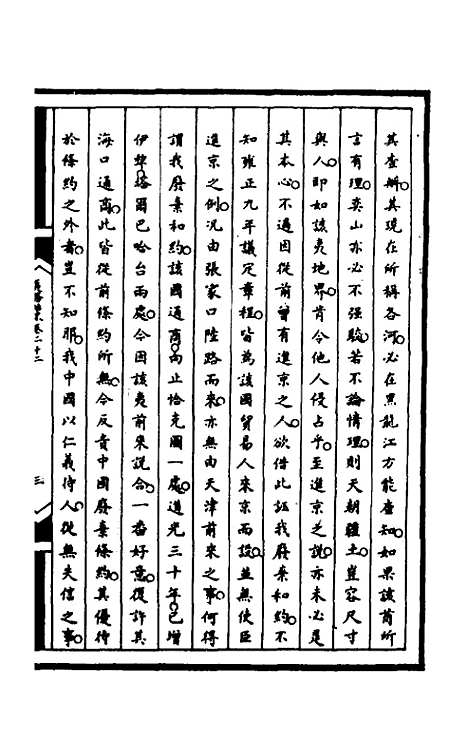 其查辦。其現在所稱各河。必在黑龍江方能查知。如果該酋所
言有理。奕山亦必不强駁。若不論情理。則天朝疆土。豈容尺寸
與人。即如該夷地界。肯令他人侵占乎。至進京之說。亦未必是
其本心。不過因從前曾有進京之人。欲借此誣我廢棄和約。不
知雍正九年議定章程。皆為該國貿易人來京而設。並無使臣
進京之例。況由張家口陸路而來。亦無由天津前來之事。何得
謂我廢棄和約。該國通商。向止恰克圖一處。道光三十年。已增
伊犂。塔爾巴哈台兩處。今因該夷前來說合。一番好意。復許其
海口通商。此皆從前條約所無。今反責中國廢棄條約。其優待
於條約之外者。豈不知耶。我中國以仁義待人。從無失信之事。
卷二十二
三